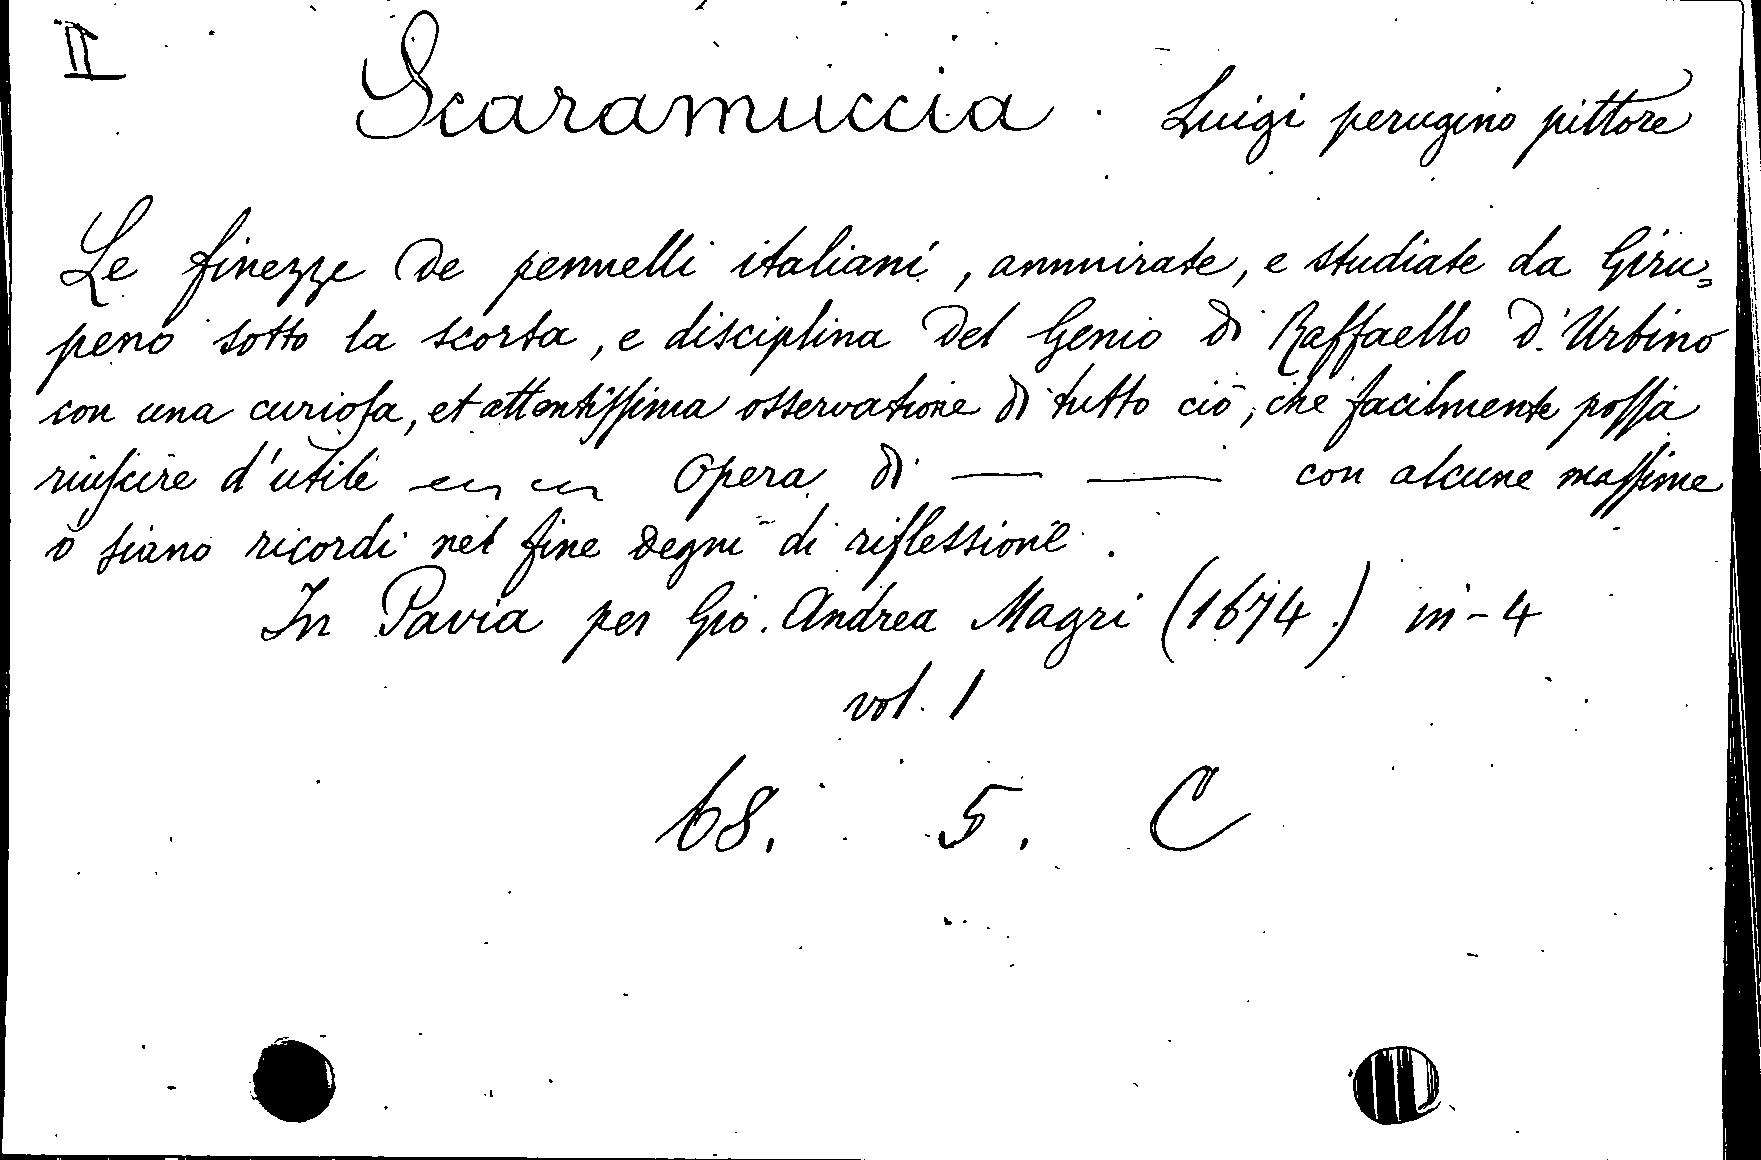 II
Scaramuccia . Luigi perugino pittore
Le finezze de pennelli italiani, ammirate, e studiate da Giru=
peno sotto la scorta, e disciplina del Genio di Raffaello d'Urbino
con una curiosa, et attentissima osservatione di tutto ciò, che facilmente possa
riuscire d'utile Opera di — — con alcune massime
o siano ricordi nel fine degni di riflessione.
In Pavia per Gio. Andrea Magri (1674.) in-4
vol. 1
68. 5. C